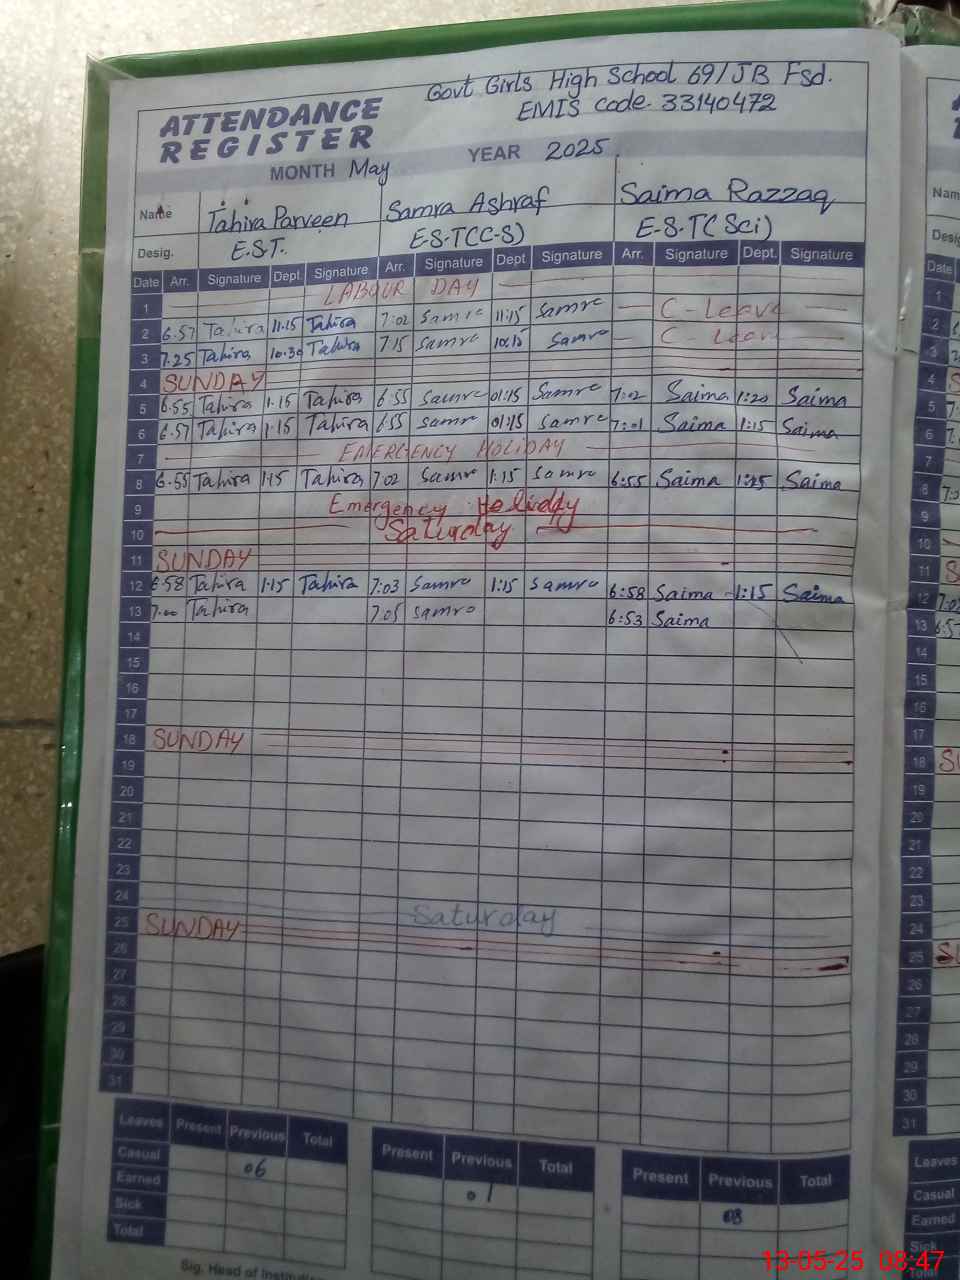 Govt Girls High School 69/JB Fsd.
EMIS code. 33140472
ATTENDANCE
REGISTER
MONTH May YEAR 2025
Name Tahira Parveen Samra Ashraf Saima Razzaq
Desig. E.S.T. E-S-T(C-S) E-S-T(Sci)
Date Arr. Signature Dept. Signature Arr. Signature Dept Signature Arr. Signature Dept. Signature
1 LABOUR DAY
2 6.57 Tahira 11.15 Tahira 7:02 Samra 11:15 Samra C-Leave
3 7.25 Tahira 10.30 Tahira 7.15 Samra 10:15 Samra C-Leave
4 SUNDAY
5 6.55 Tahira 1.15 Tahira 6:55 Samra 01:15 Samra 7:02 Saima 1:20 Saima
6 6.57 Tahira 1.15 Tahira 6:55 Samra 01:15 Samra 7:01 Saima 1:15 Saima
7 EMERGENCY HOLIDAY
8 6.55 Tahira 1.15 Tahira 7.02 Samra 1:15 Samra 6:55 Saima Saima
9 Emergency Holiday
10 Saturday
11 SUNDAY
12 6.58 Tahira 1.15 Tahira 7:03 Samra 1:15 Samra 6:58 Saima 1:15 Saima
13 7.00 Tahira 7.05 Samra 6:53 Saima
14
15
16
17
18 SUNDAY
19
20
21
22
23
24 Saturday
25 SUNDAY
26
27
28
29
30
31
Leaves Present Previous Total Present Previous Total Present Previous Total
Casual 06 01 08
Earned
Sick
Total
Sig. Head of
13-05-25 08:47